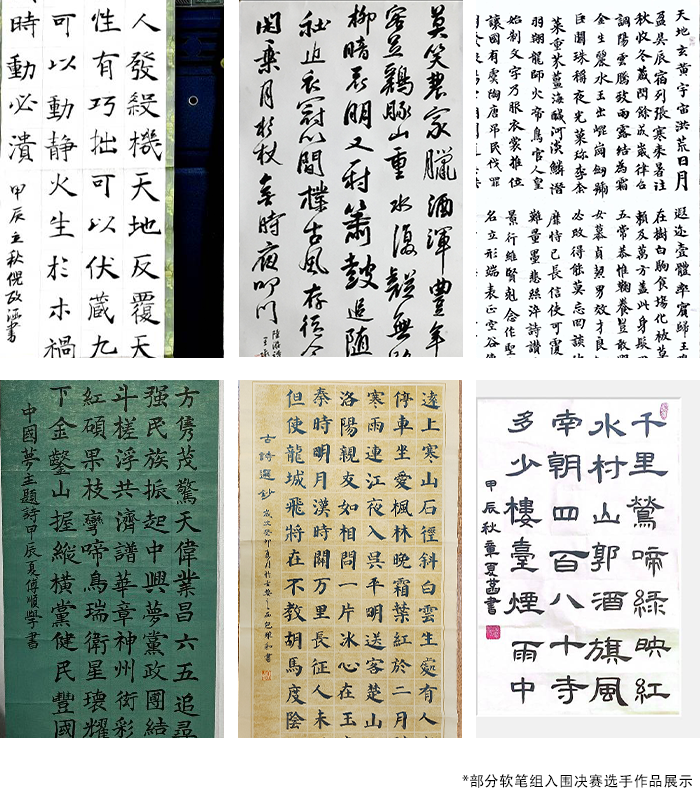 人發殺機天地反覆天
性有巧拙可以伏藏九
可以動靜火生於木禍
時動必潰
甲辰立秋倪政涵書
莫笑農家臘酒渾豐年
客足鷄豚山重水復疑無路
柳暗花明又一村簫鼓追隨
社近衣冠簡樸古風存從今
閑乘月拄杖無時夜叩門
陸游詩
天地玄黄宇宙洪荒日月
盈昃辰宿列張寒來暑往
秋收冬藏閏餘成歲律呂
調陽雲騰致雨露結為霜
金生麗水玉出崐崗劍號
巨闕珠稱夜光菓珍李柰
菜重芥薑海鹹河淡鱗潛
羽翔龍師火帝鳥官人皇
始制文字乃服衣裳推位
讓國有虞陶唐弔民伐罪
遐迩壹體率賓歸王
在樹白駒食場化被草
賴及萬方蓋此身髮四
五常恭惟鞠養豈敢毀
女慕貞絜男效才良
必改得能莫忘罔談彼
靡恃己長信使可覆
難量墨悲絲淬詩讚
景行維賢剋念作聖
名立形端表正空谷傳
方雋茂驚天偉業昌六五追尋
强民族振起中興夢黨政團結
斗槎浮共濟譜華章神州街彩
紅碩果枝彎啼鳥瑞衛星環耀
下金鑿山握縱橫黨健民豐國
中國夢主題詩甲辰夏傅順學書
遠上寒山石徑斜白雲生處有人
停車坐愛楓林晚霜葉紅於二月
寒雨連江夜入吳平明送客楚山
洛陽親友如相問一片冰心在玉
秦時明月漢時關万里長征人未
但使龍城飛將在不教胡馬度陰
古詩選鈔
千里鶯啼綠映紅
水村山郭酒旗風
南朝四百八十寺
多少樓臺煙雨中
甲辰秋章夏菡書
*部分软笔组入围决赛选手作品展示